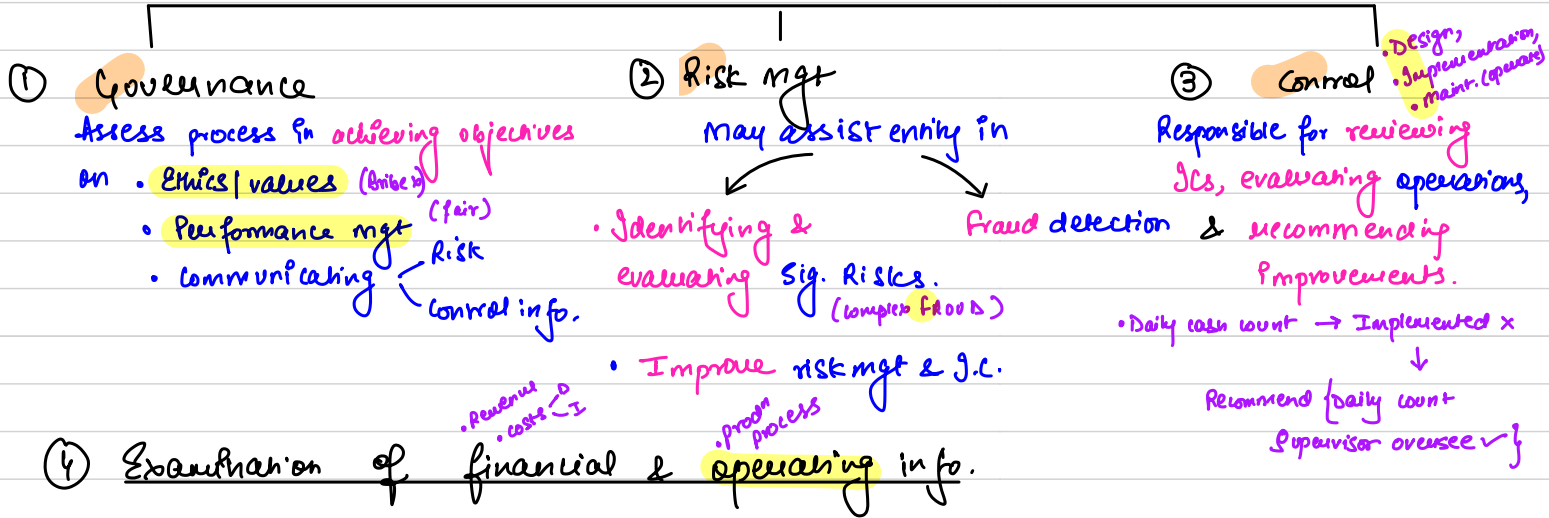 ① Governance
Assess process in achieving objectives
on • Ethics/values (Bribe x)
• Performance mgt (fair)
• communicating
Risk
Control info.
② Risk mgt
May assist entity in
• Identifying &
evaluating Sig. Risks.
(complex FRAUD)
• Improve risk mgt & I.C.
Fraud detection
③ Control
• Design,
• Implementation,
• maint. (operate)
Responsible for reviewing
ICs, evaluating operations,
& recommending
improvements.
• Daily cash count → Implemented x
↓
Recommend {Daily count
Supervisor oversee ✓}
④ Examination of financial & operating info.
• Revenue
• costs D I
• prodⁿ process